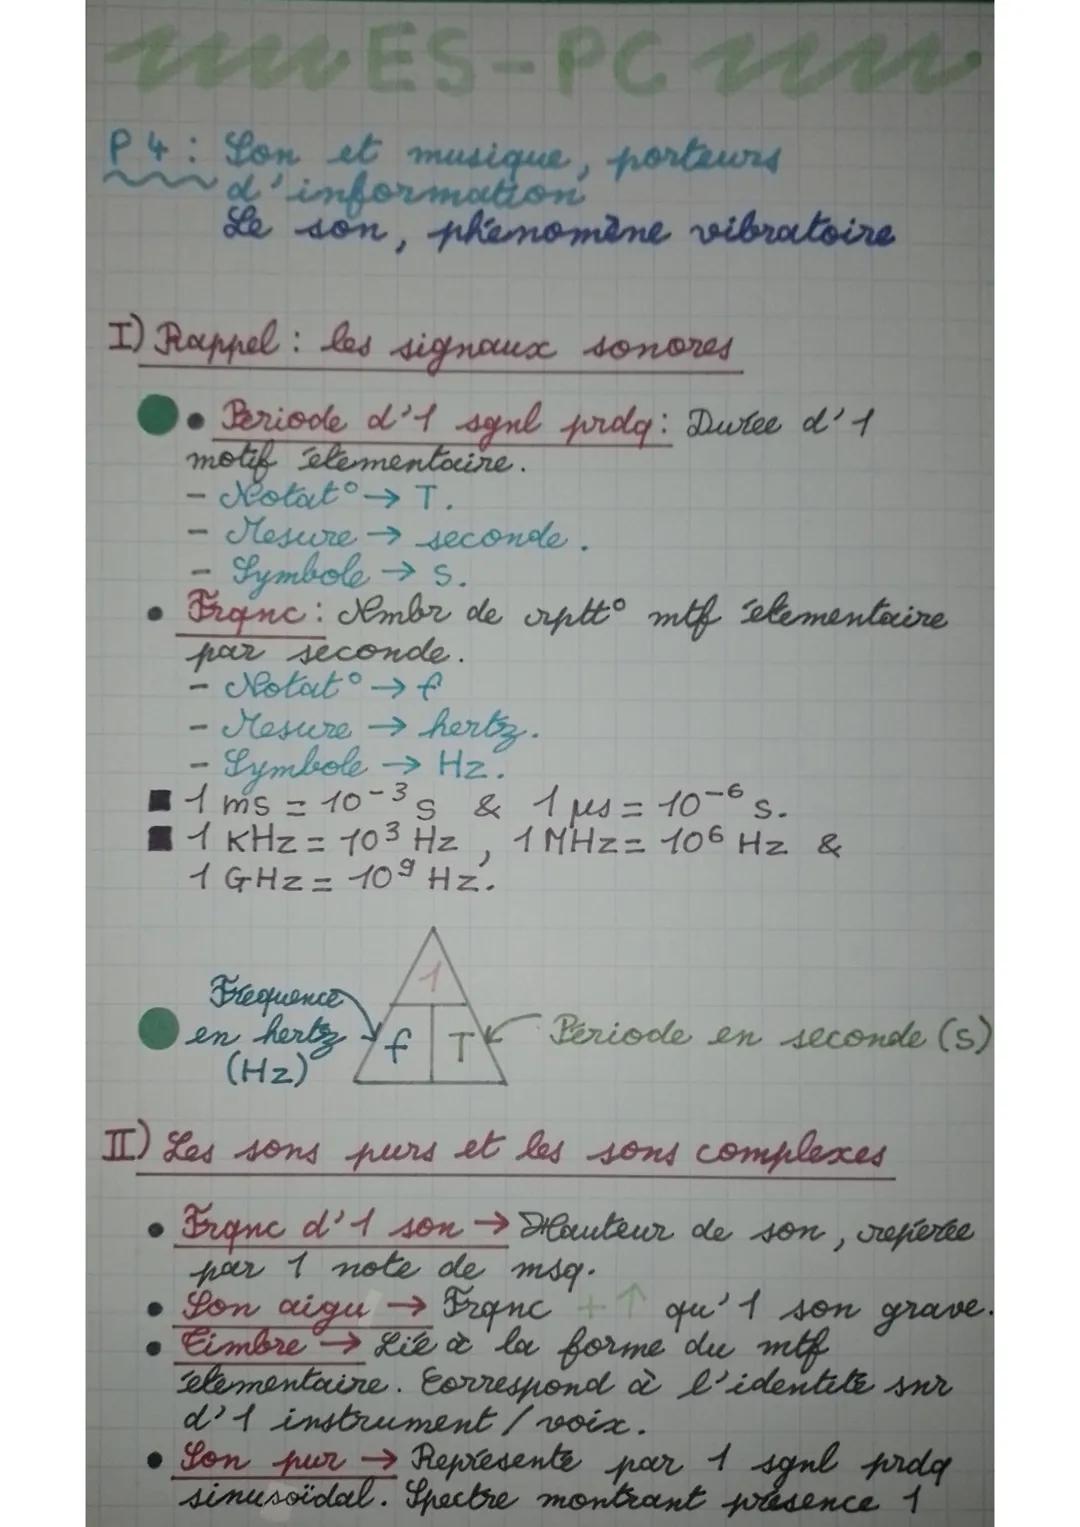 ES-PC
P4: Son et musique, porteurs
d'information
Le son, phénomène vibratoire
I) Rappel: les signaux sonores
• Période d'1 sgnl prdq: Durée d'1
motif élémentaire.
- Notat° → T.
- Mesure → seconde.
- Symbole → s.
• Frqnc: Nmbr de rptt° mtf élémentaire
par seconde.
- Notat° → f
- Mesure → hertz.
- Symbole → Hz.
■ 1 ms = 10⁻³ s & 1 µs = 10⁻⁶ s.
■ 1 KHz = 10³ Hz, 1 MHz = 10⁶ Hz &
1 GHz = 10⁹ Hz.
1
Fréquence
en hertz
(Hz)
f T
Période en seconde (s)
II) Les sons purs et les sons complexes
• Frqnc d'1 son → Hauteur de son, repérée
par 1 note de msq.
• Son aigu → Frqnc +↑ qu'1 son grave.
• Timbre → Lié à la forme du mtf
élémentaire. Correspond à l'identité snr
d'1 instrument / voix.
• Son pur → Représenté par 1 sgnl prdq
sinusoïdal. Spectre montrant présence 1